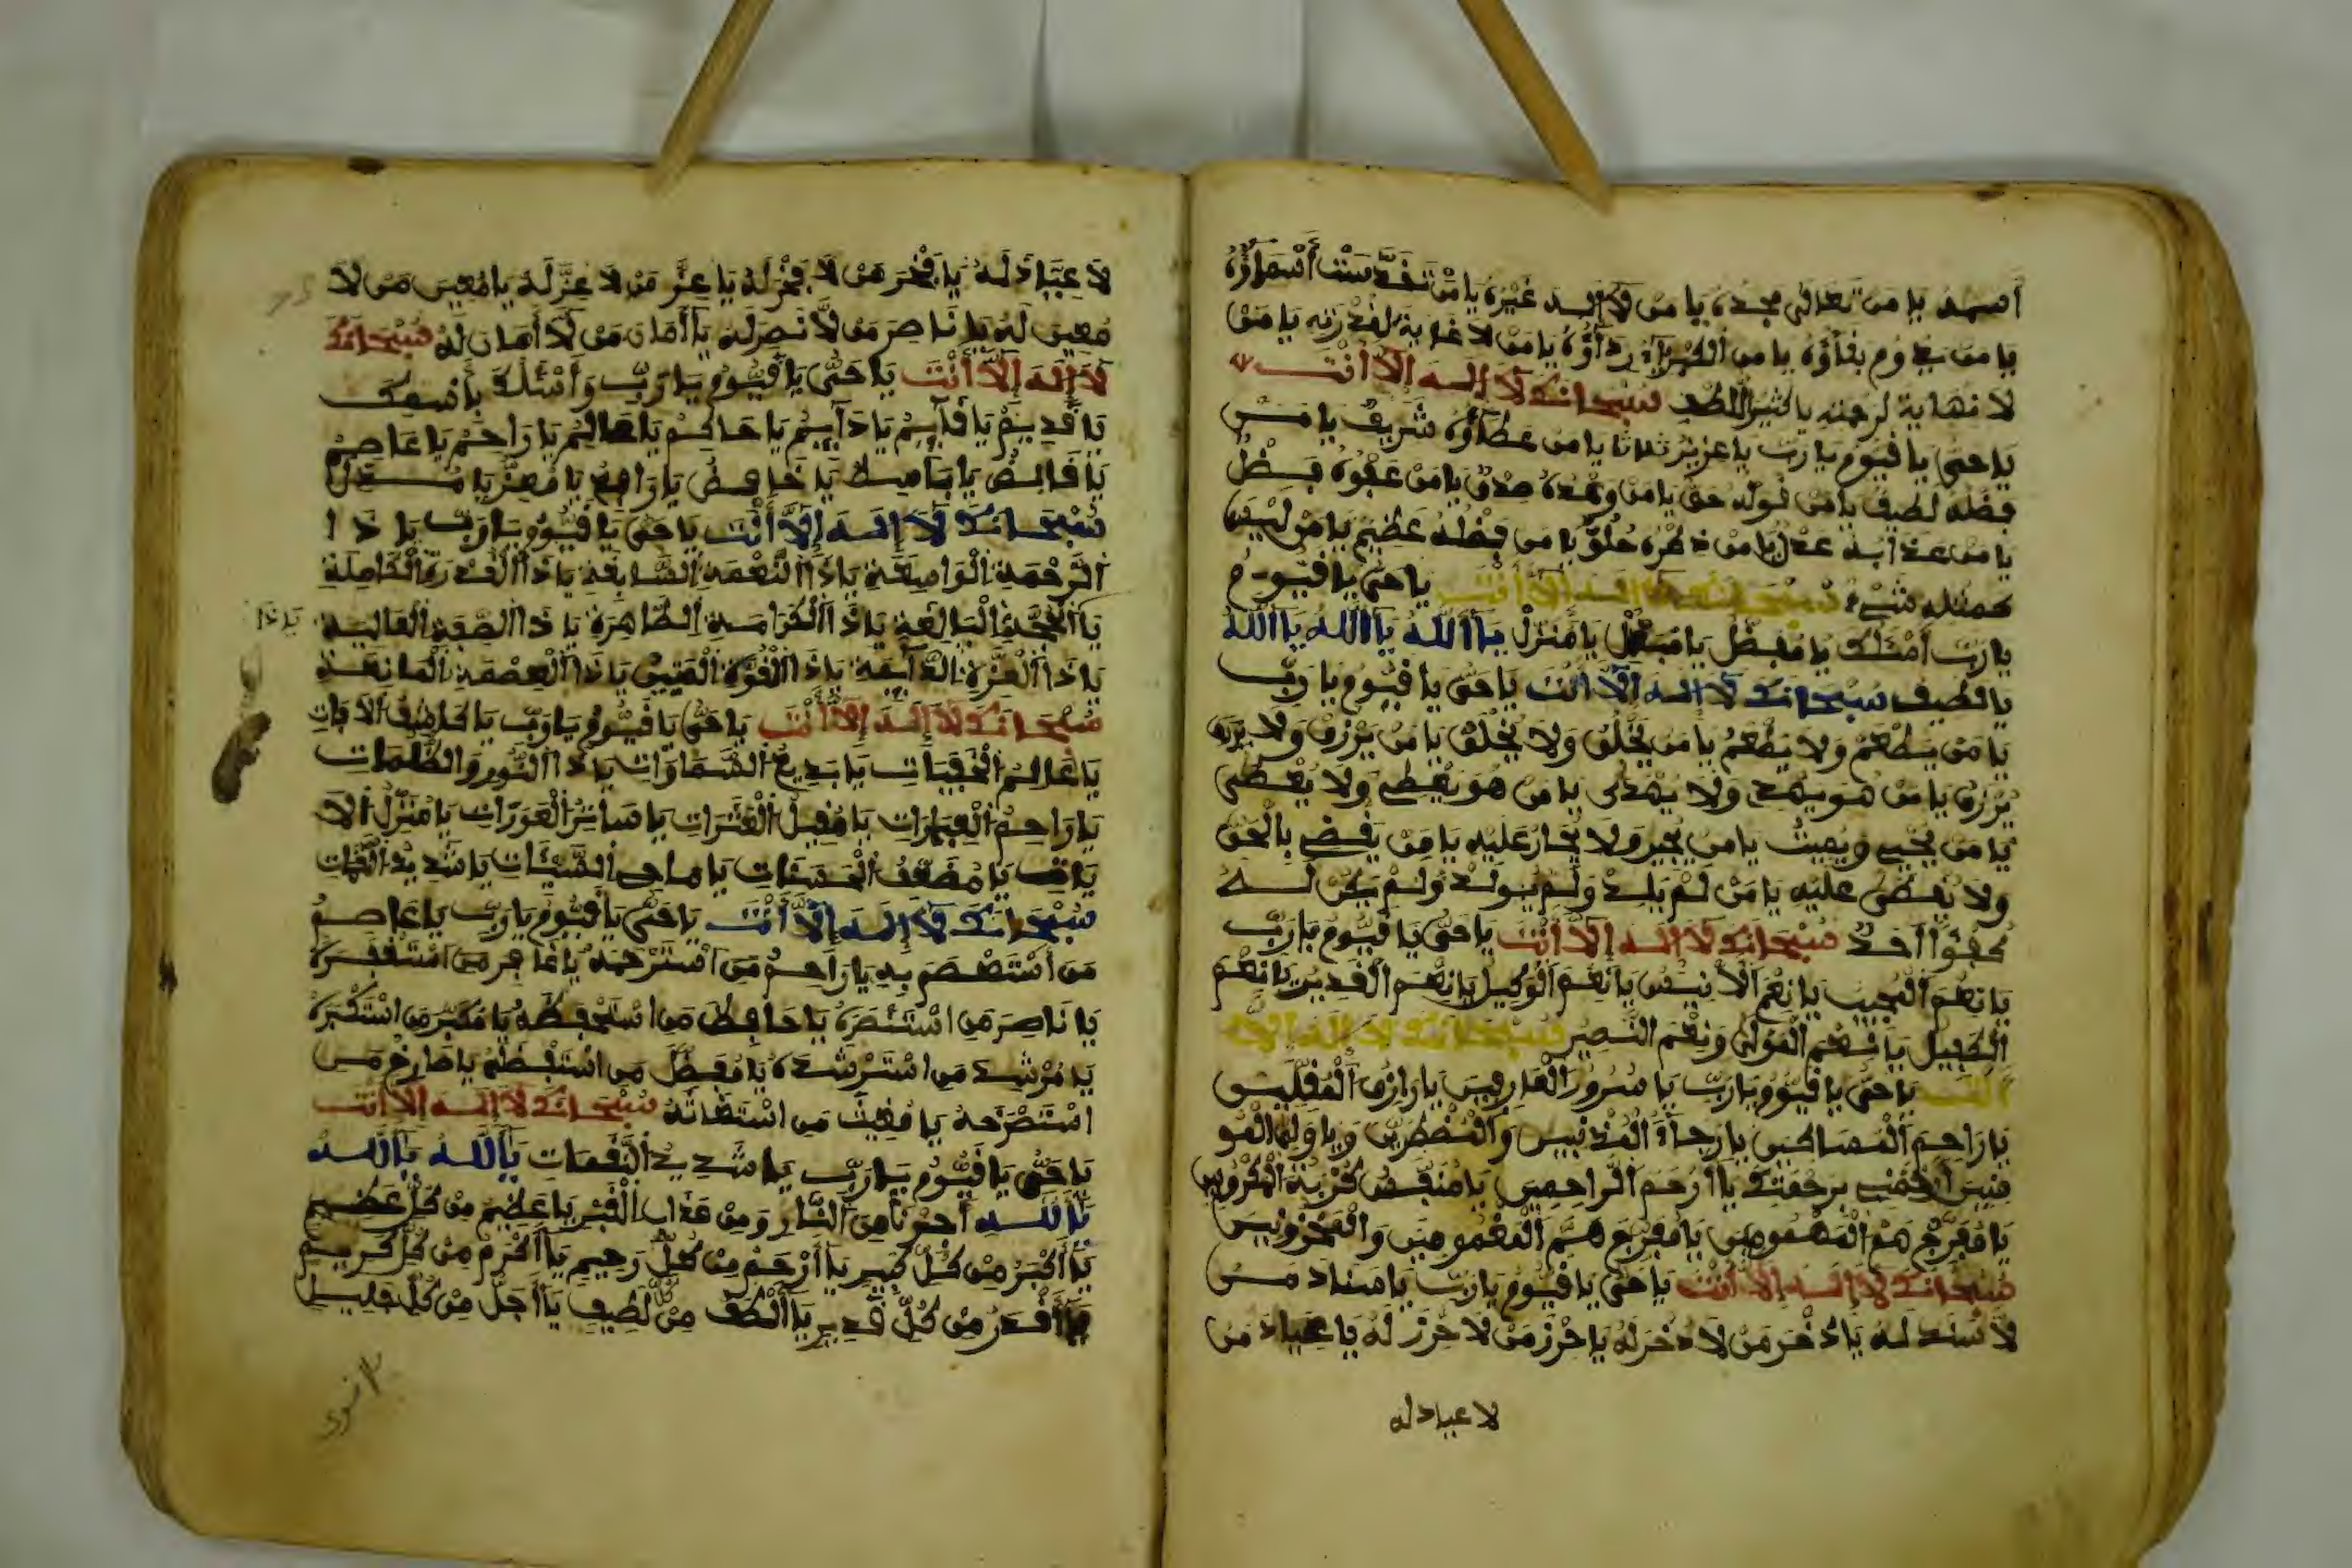 اسمه يا من تعالى مجده يا من لا اله غيره يا من تقدست أسماؤه
يا من يدوم بقاؤه يا من الكبرياء رداؤه يا من لا غاية لقدرته يا من
لا نهاية لرحمته يا كثير اللطف سبحانك لا إله إلا أنت
يا حي يا قيوم يا رب يا عزيز ثلاثا يا من عطاؤه شريف يا من
فضله لطيف يا من قوله حق يا من وعده صدق يا من عفوه فضل
يا من عذابه عدل يا من ذكره حلو يا من فضله عظيم يا من ليس
كمثله شيء سبحانك لا اله الا أنت يا حي يا قيوم
يا رب أسئلك يا مفضل يا منزل يا ألله يا ألله يا ألله
يا لطيف سبحانك لا اله الا انت يا حي يا قيوم يا رب
يا من يطعم ولا يطعم يا من يخلق ولا يخلق يا من يرزق ولا
يرزق يا من هو يهدي ولا يهدى يا من هو يعطي ولا يعطى
يا من يحيي ويميت يا من يجير ولا يجار عليه يا من يقضي بالحق
ولا يقضى عليه يا من لم يلد ولم يولد ولم يكن له
كفؤا أحد سبحانك لا اله إلا أنت يا حي يا قيوم يا رب
يا نعم المجيب يا نعم الأنيس يا نعم الوكيل يا نعم القدير يا نعم
الكفيل يا نعم المولى ونعم النصير سبحانك لا اله الا
أنت يا حي يا قيوم يا رب يا سرور العارفين يا رازق المقلين
يا راحم المساكين يا رجاء المذنبين والمضطرين ويا ولي المو
منين أرحمني برحمتك يا أرحم الراحمين يا منفس كربة المكروبين
يا مفرج هم المهمومين يا مفرج هم المغمومين والمحزونين
سبحانك لا إله إلا أنت يا حي يا قيوم يا رب يا سناد من
لا سند له يا ذخر من لا ذخر له يا حرز من لا حرز له يا عياد من
لا عياد له
لا عياد له يا فخر من لا فخر له يا عز من لا عز له يا معين من لا
معين له يا ناصر من لا نصر له يا أمان من لا أمان له سبحانك
لا إله إلا أنت يا حي يا قيوم يا رب وأسئلك بأسمك
يا قديم يا قآيم يا دآيم يا حاكم يا عالم يا راحم يا عاصم
يا قابض يا باسط يا خافض يا رافع يا معز يا مذل
سبحانك لا إله إلا أنت يا حي يا قيوم يا رب يا ذا
الرحمة الواسعة يا ذا النعمة السابغة يا ذا القدرة الكاملة
يا ذا
يا الحجة البالغة يا ذا الكرامة الظاهرة يا ذا الصفة العالية
يا ذا العزة الدآيمة يا ذا القوة المتين يا ذا العصمة المانعة
سبحانك لا إله إلا أنت يا حي يا قيوم يا رب يا كاشف الآيات
يا عالم الخفيات يا بديع السماوات يا ذا النور والظلمات
يا راحم العبرات يا مقيل العثرات يا ساتر العورات يا منزل الآ
يات يا مضعف الحسنات يا ماحي السيئات يا شديد النقمات
سبحانك لا إله إلا أنت يا حي يا قيوم يا رب يا عاصم
من أستعصم به يا راحم من استرحمه يا غافر من استغفره
يا ناصر من استنصره يا حافظ من استحفظه يا مكبر من استكبره
يا مرشد من استرشده يا مفضل من استفضله يا صارخ من
استصرخه يا مغيث من استغاثه سبحانك لا إله إلا أنت
يا حي يا قيوم يا رب يا شديد النقمات يا ألله يا ألله
يا ألله أجرنا من النار ومن عذاب القبر يا عظيم من كل عظيم
يا أكبر من كل كبير يا أرحم من كل رحيم يا أكرم من كل كريم
يا أقدر من كل قدير يا ألطف من كل لطيف يا أجل من كل جليل